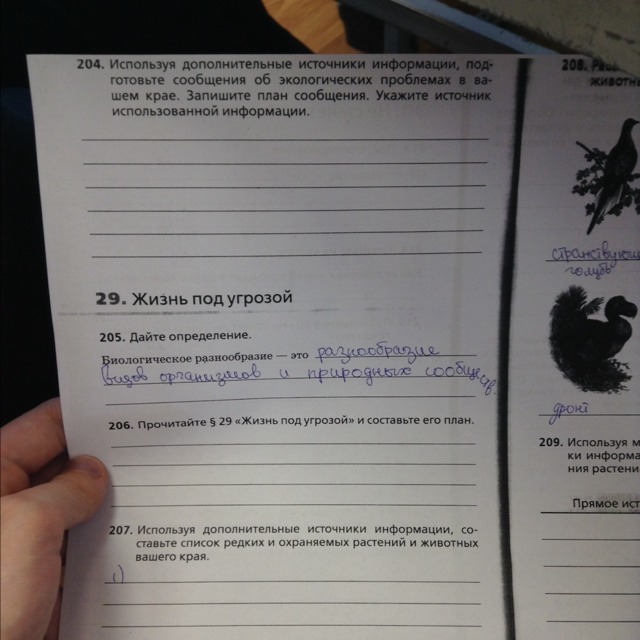 204. Используя дополнительные источники информации, под-
готовьте сообщения об экологических проблемах в ва-
шем крае. Запишите план сообщения. Укажите источник
использованной информации.
29. Жизнь под угрозой
205. Дайте определение.
Биологическое разнообразие — это разнообразие
видов организмов и природных сообществ.
206. Прочитайте § 29 «Жизнь под угрозой» и составьте его план.
207. Используя дополнительные источники информации, со-
ставьте список редких и охраняемых растений и животных
вашего края.
1)
208.
животн
странствующ
голубь
дронт
209. Используя м
ки информа
ния растени
Прямое ист